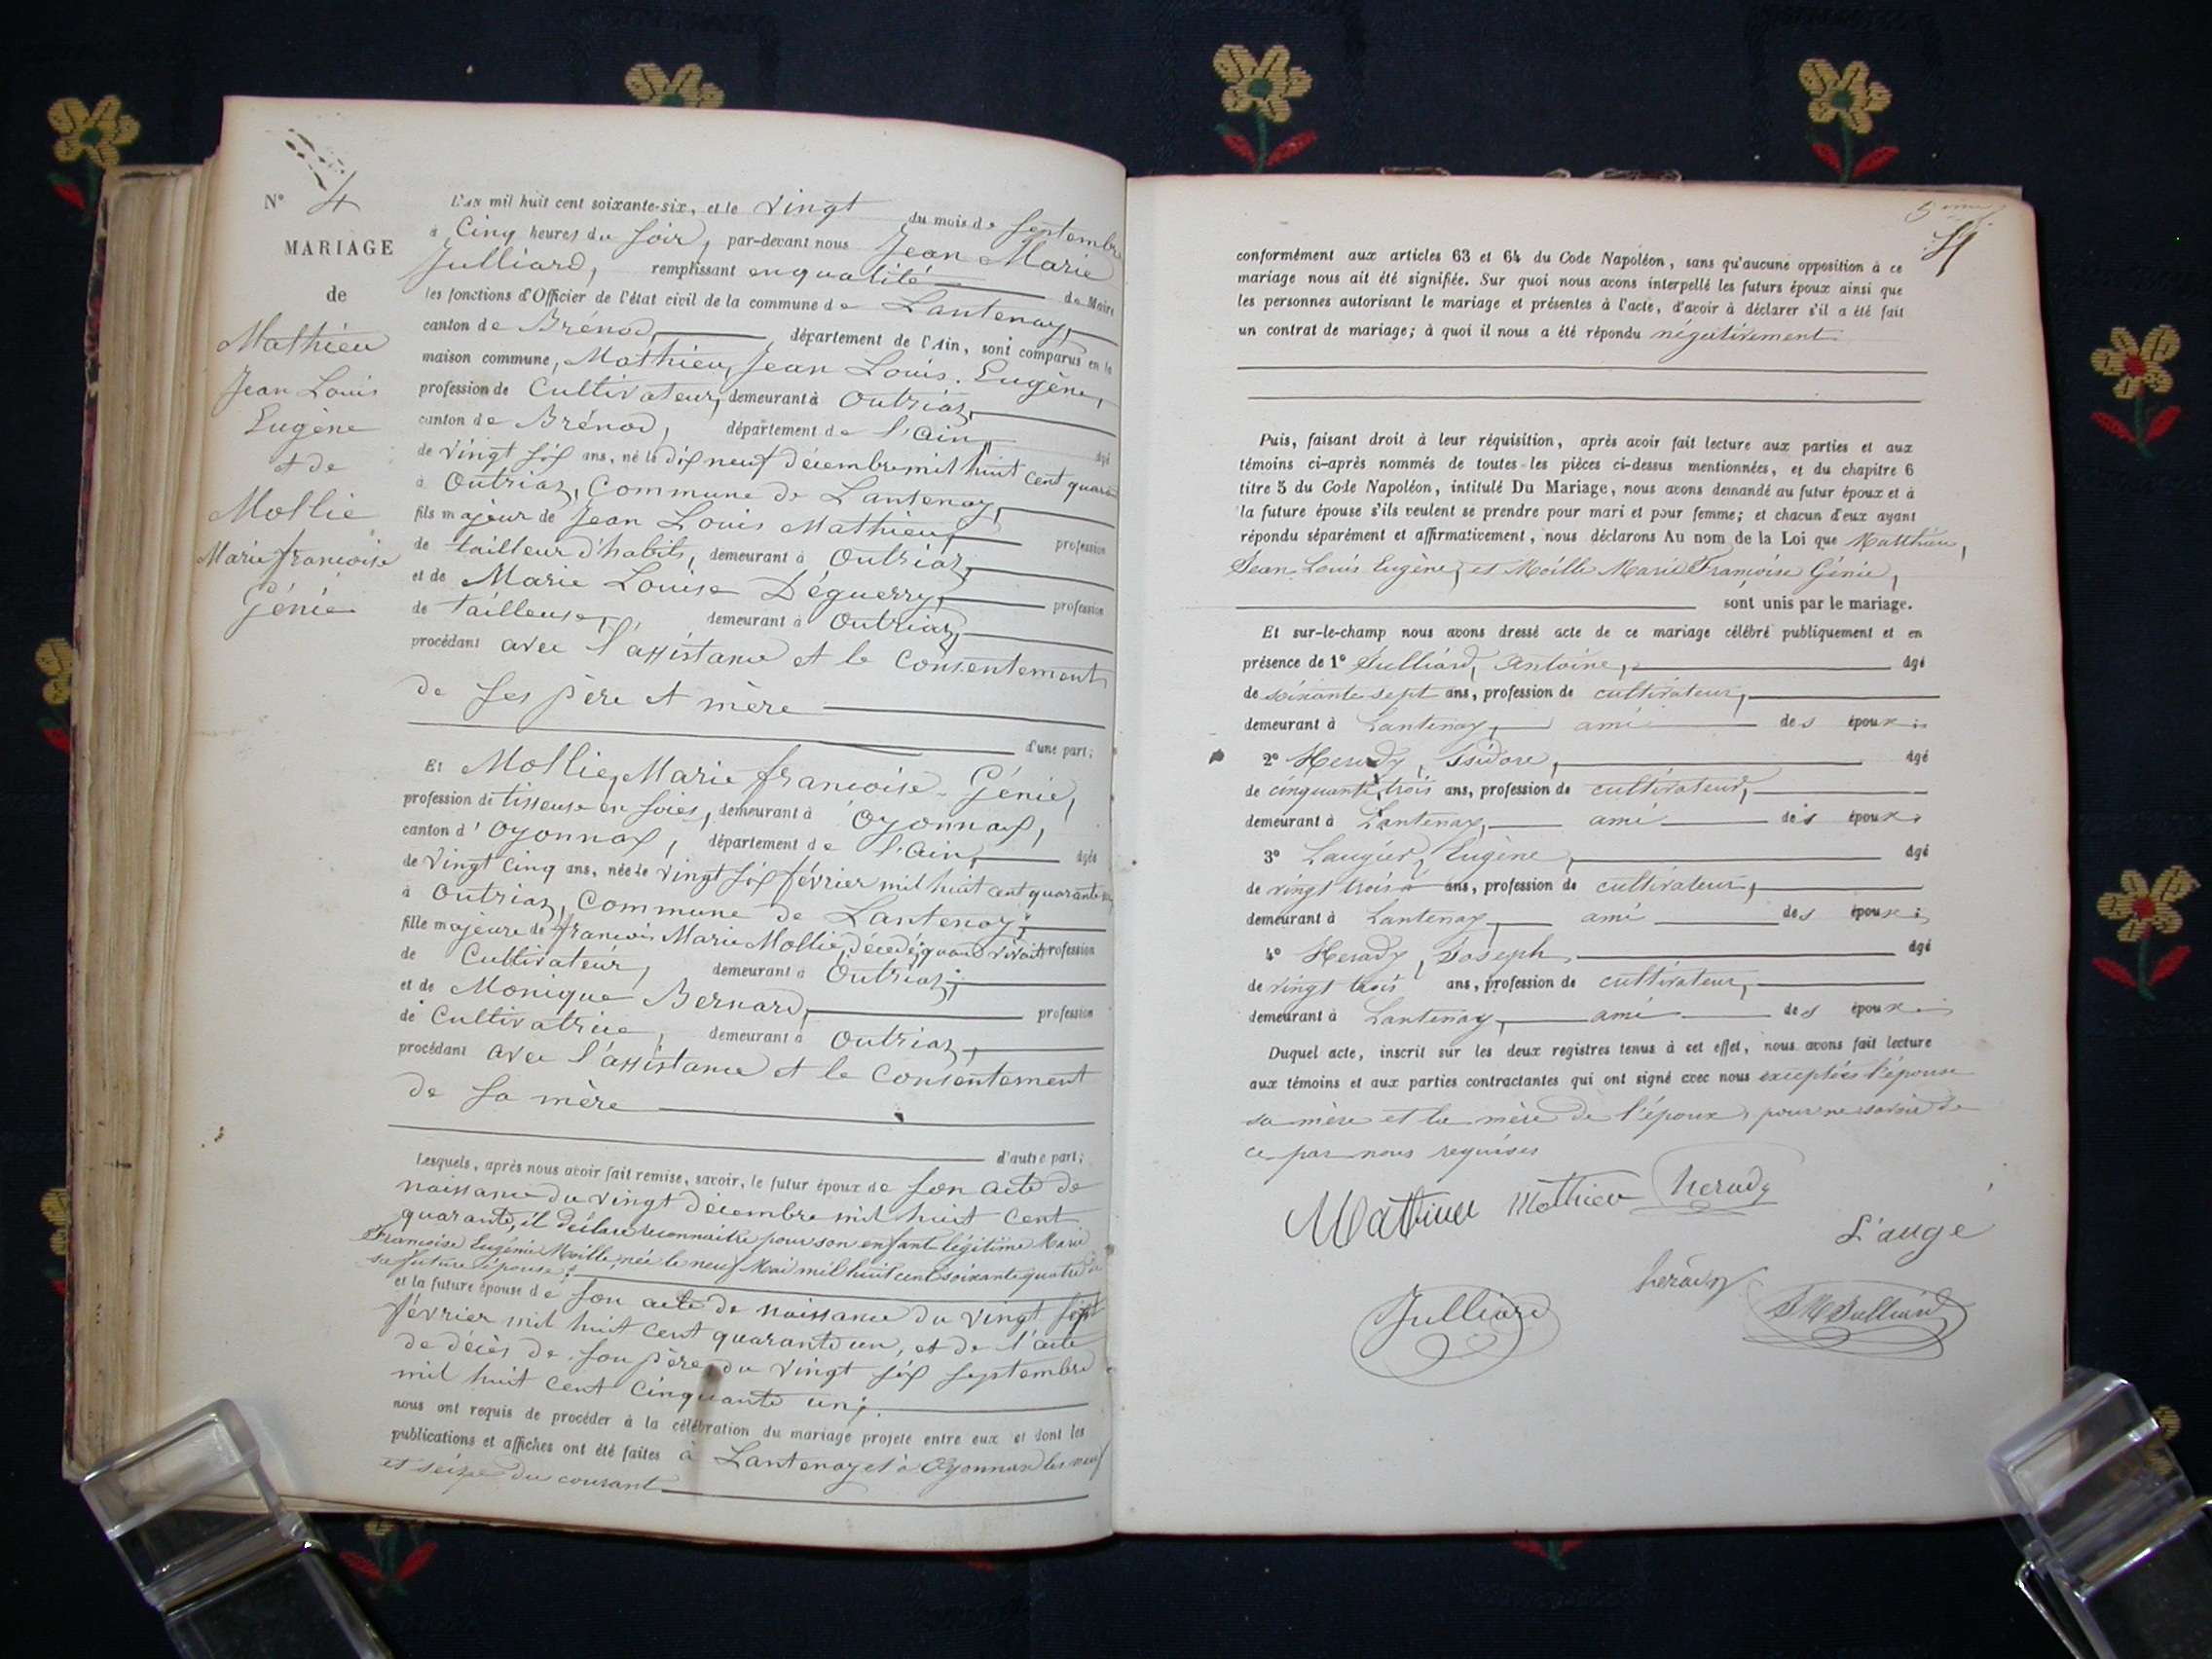 N° 4
MARIAGE
de
Mathieu
Jean Louis
Eugène
et de
Mollie
Marie françoise
Génie
L'AN mil huit cent soixante-six, et le vingt du mois de septembre
à Cinq heures du soir, par-devant nous Jean Marie
Julliard, remplissant en qualité de Maire
les fonctions d'Officier de l'état civil de la commune de Lantenay,
canton de Brénod, département de l'Ain, sont comparus en la
maison commune, Mathieu, Jean Louis Eugène,
profession de Cultivateur, demeurant à Outriaz,
canton de Brénod, département de l'ain, âgé
de vingt six ans, né le dix neuf décembre mil huit cent quarante
à Outriaz, Commune de Lantenay,
fils majeur de Jean Louis Mathieu, profession
de tailleur d'habits, demeurant à Outriaz,
et de Marie Louise Déguerry, profession
de tailleuse, demeurant à Outriaz,
procédant avec l'assistance et le Consentement
de ses père et mère
d'une part;
Et Mollie, Marie françoise Génie,
profession de tisseuse en soies, demeurant à Oyonnax,
canton d'Oyonnax, département de l'ain, âgée
de vingt cinq ans, née le vingt six février mil huit cent quarante un
à Outriaz, Commune de Lantenay,
fille majeure de françois Marie Mollie, décédé, quand vivait profession
de Cultivateur, demeurant à Outriaz;
et de Monique Bernard, profession
de Cultivatrice, demeurant à Outriaz,
procédant avec l'assistance et le Consentement
de sa mère
d'autre part;
Lesquels, après nous avoir fait remise, savoir, le futur époux de son acte de
naissance du vingt décembre mil huit cent
quarante, il déclare reconnaitre pour son enfant légitime Marie
Françoise Eugénie Moille, née le neuf Mai mil huit cent soixante quatre de
sa future épouse;
et la future épouse de son acte de naissance du vingt sept
février mil huit cent quarante un, et de l'acte
de décès de son père du vingt six septembre
mil huit cent cinquante un;
nous ont requis de procéder à la célébration du mariage projeté entre eux et dont les
publications et affiches ont été faites à Lantenay et à Oyonnax les neuf
et seize du courant
conformément aux articles 63 et 64 du Code Napoléon, sans qu'aucune opposition à ce
mariage nous ait été signifiée. Sur quoi nous avons interpellé les futurs époux ainsi que
les personnes autorisant le mariage et présentes à l'acte, d'avoir à déclarer s'il a été fait
un contrat de mariage; à quoi il nous a été répondu négativement
Puis, faisant droit à leur réquisition, après avoir fait lecture aux parties et aux
témoins ci-après nommés de toutes les pièces ci-dessus mentionnées, et du chapitre 6
titre 5 du Code Napoléon, intitulé Du Mariage, nous avons demandé au futur époux et à
la future épouse s'ils veulent se prendre pour mari et pour femme; et chacun d'eux ayant
répondu séparément et affirmativement, nous déclarons Au nom de la Loi que Matthieu,
Jean Louis Eugène, et Moille Marie Françoise Génie,
sont unis par le mariage.
Et sur-le-champ nous avons dressé acte de ce mariage célébré publiquement et en
présence de 1° Julliard, Antoine, âgé
de soixante sept ans, profession de cultivateur,
demeurant à Lantenay, ami des époux;
2° Herady, Isidore, âgé
de cinquante trois ans, profession de cultivateur,
demeurant à Lantenay, ami des époux;
3° Laugier, Eugène, âgé
de vingt trois ans, profession de cultivateur,
demeurant à Lantenay, ami des époux;
4° Herady, Joseph, âgé
de vingt trois ans, profession de cultivateur,
demeurant à Lantenay, ami des époux;
Duquel acte, inscrit sur les deux registres tenus à cet effet, nous avons fait lecture
aux témoins et aux parties contractantes qui ont signé avec nous exceptées l'épouse
sa mère et la mère de l'époux, pour ne savoir de
ce par nous requises
Mathieu Mathieu Herady
Laugé
Julliard herady JM Julliard